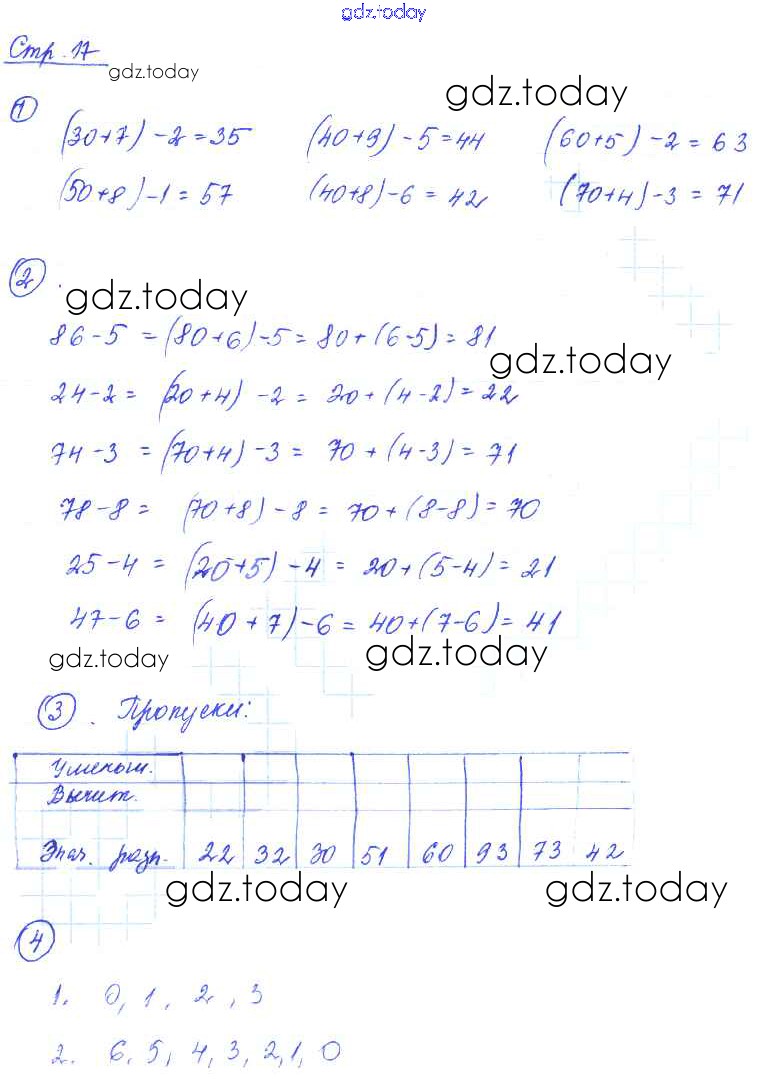 gdz.today
Стр. 17
gdz.today
gdz.today
1
(30+7) - 2 = 35 (40+9) - 5 = 44 (60+5) - 2 = 63
(50+8) - 1 = 57 (40+8) - 6 = 42 (70+4) - 3 = 71
2.
gdz.today
86 - 5 = (80+6) - 5 = 80 + (6-5) = 81
gdz.today
24 - 2 = (20+4) - 2 = 20 + (4-2) = 22
74 - 3 = (70+4) - 3 = 70 + (4-3) = 71
78 - 8 = (70+8) - 8 = 70 + (8-8) = 70
25 - 4 = (20+5) - 4 = 20 + (5-4) = 21
47 - 6 = (40+7) - 6 = 40 + (7-6) = 41
gdz.today gdz.today
3. Пропуски:
Уменьш.
Вычит.
Знач. разн. 22 32 30 51 60 93 73 42
gdz.today gdz.today
4
1. 0, 1, 2, 3
2. 6, 5, 4, 3, 2, 1, 0